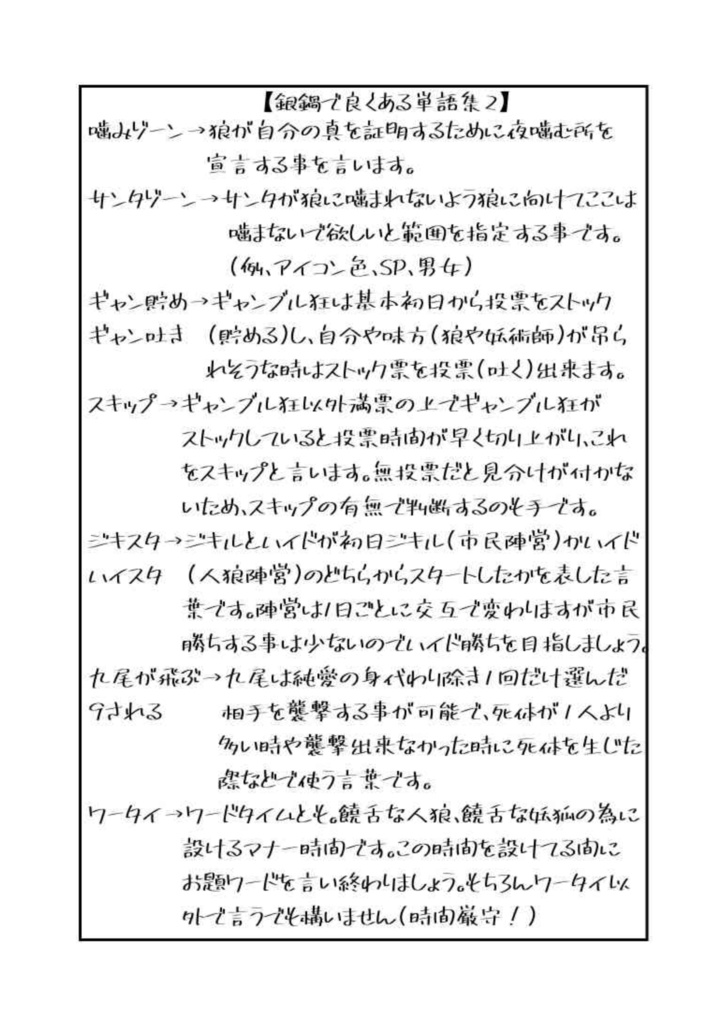 【銀鍋で良くある単語集2】
噛みゾーン→狼が自分の真を証明するために夜噛む所を
宣言する事を言います。
サンタゾーン→サンタが狼に噛まれないよう狼に向けてここは
噛まないで欲しいと範囲を指定する事です。
(例、アイコン色、SP、男女)
ギャン貯め→ギャンブル狂は基本初日から投票をストック
ギャン吐き (貯める)し、自分や味方(狼や妖術師)が吊ら
れそうな時はストック票を投票(吐く)出来ます。
スキップ→ギャンブル狂以外満票の上でギャンブル狂が
ストックしていると投票時間が早く切り上がり、これ
をスキップと言います。無投票だと見分けが付かな
いため、スキップの有無で判断するのも手です。
ジキスタ→ジキルとハイドが初日ジキル(市民陣営)かハイド
ハイスタ (人狼陣営)のどちらからスタートしたかを表した言
葉です。陣営は1日ごとに交互で変わりますが市民
勝ちする事は少ないのでハイド勝ちを目指しましょう。
九尾が飛ぶ→九尾は純愛の身代わり除き1回だけ選んだ
9される 相手を襲撃する事が可能で、死体が1人より
多い時や襲撃出来なかった時に死体を生じた
際などで使う言葉です。
ワータイ→ワードタイムとも。饒舌な人狼、饒舌な妖狐の為に
設けるマナー時間です。この時間を設けてる間に
お題ワードを言い終わりましょう。もちろんワータイ以
外で言うでも構いません(時間厳守!)